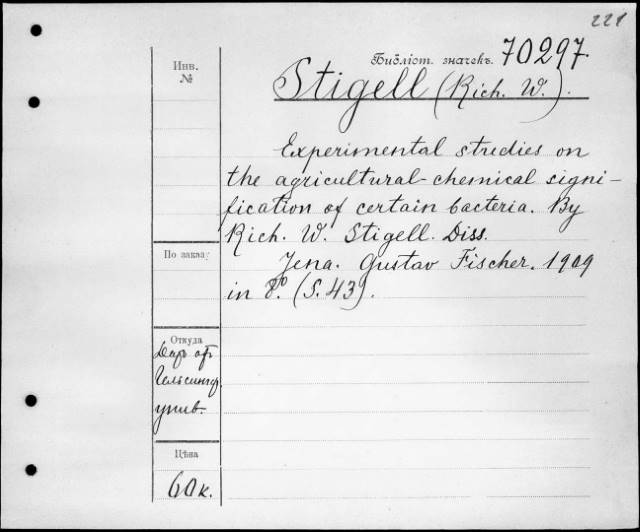 221
Библіот. значекъ. 70297.
Инв.
№
Stigell (Rich. W.).
Experimental studies on
the agricultural-chemical signi-
fication of certain bacteria. By
Rich. W. Stigell. Diss.
Jena. Gustav Fischer. 1909
in 8º. (S. 43).
По заказу
Откуда
Даръ отъ
Гельсингф.
унив.
Цѣна
60 к.